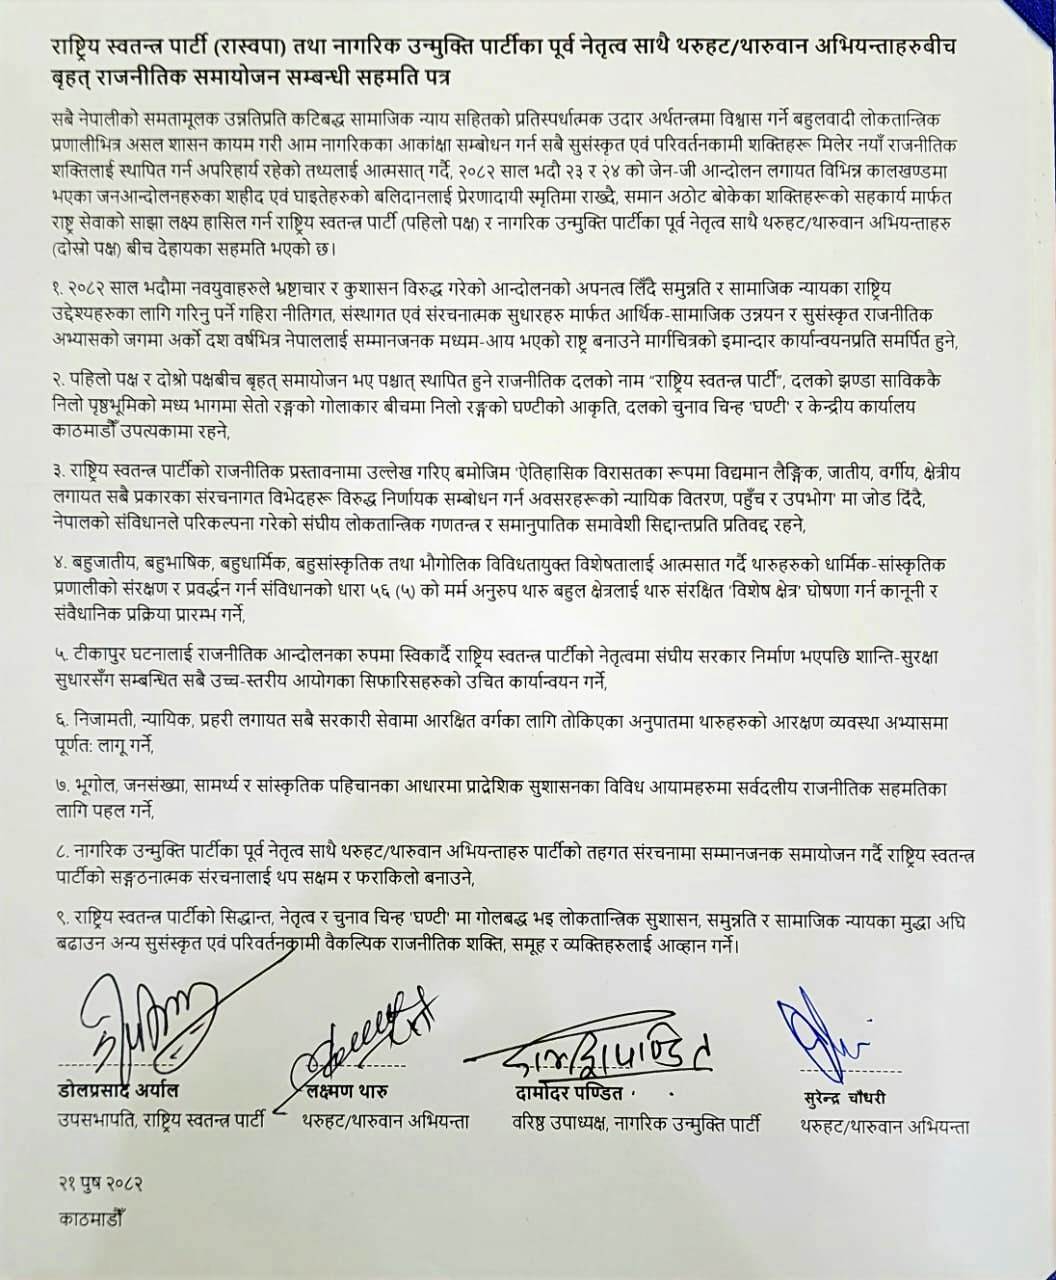 राष्ट्रिय स्वतन्त्र पार्टी (रास्वपा) तथा नागरिक उन्मुक्ति पार्टीका पूर्व नेतृत्व साथै थरुहट/थारुवान अभियन्ताहरुबीच
बृहत् राजनीतिक समायोजन सम्बन्धी सहमति पत्र
सबै नेपालीको समतामूलक उन्नतिप्रति कटिबद्ध सामाजिक न्याय सहितको प्रतिस्पर्धात्मक उदार अर्थतन्त्रमा विश्वास गर्ने बहुलवादी लोकतान्त्रिक
प्रणालीभित्र असल शासन कायम गरी आम नागरिकका आकांक्षा सम्बोधन गर्न सबै सुसंस्कृत एवं परिवर्तनकामी शक्तिहरू मिलेर नयाँ राजनीतिक
शक्तिलाई स्थापित गर्न अपरिहार्य रहेको तथ्यलाई आत्मसात् गर्दै, २०८२ साल भदौ २३ र २४ को जेन-जी आन्दोलन लगायत विभिन्न कालखण्डमा
भएका जनआन्दोलनहरुका शहीद एवं घाइतेहरुको बलिदानलाई प्रेरणादायी स्मृतिमा राख्दै, समान अठोट बोकेका शक्तिहरूको सहकार्य मार्फत
राष्ट्र सेवाको साझा लक्ष्य हासिल गर्न राष्ट्रिय स्वतन्त्र पार्टी (पहिलो पक्ष) र नागरिक उन्मुक्ति पार्टीका पूर्व नेतृत्व साथै थरुहट/थारुवान अभियन्ताहरु
(दोस्रो पक्ष) बीच देहायका सहमति भएको छ।
१. २०८२ साल भदौमा नवयुवाहरुले भ्रष्टाचार र कुशासन विरुद्ध गरेको आन्दोलनको अपनत्व लिँदै समुन्नति र सामाजिक न्यायका राष्ट्रिय
उद्देश्यहरुका लागि गरिनु पर्ने गहिरा नीतिगत, संस्थागत एवं संरचनात्मक सुधारहरु मार्फत आर्थिक-सामाजिक उन्नयन र सुसंस्कृत राजनीतिक
अभ्यासको जगमा अर्को दश वर्षभित्र नेपाललाई सम्मानजनक मध्यम-आय भएको राष्ट्र बनाउने मार्गचित्रको इमान्दार कार्यान्वयनप्रति समर्पित हुने,
२. पहिलो पक्ष र दोश्रो पक्षबीच बृहत् समायोजन भए पश्चात् स्थापित हुने राजनीतिक दलको नाम "राष्ट्रिय स्वतन्त्र पार्टी", दलको झण्डा साविककै
निलो पृष्ठभूमिको मध्य भागमा सेतो रङ्गको गोलाकार बीचमा निलो रङ्गको घण्टीको आकृति, दलको चुनाव चिन्ह 'घण्टी' र केन्द्रीय कार्यालय
काठमाडौँ उपत्यकामा रहने,
३. राष्ट्रिय स्वतन्त्र पार्टीको राजनीतिक प्रस्तावनामा उल्लेख गरिए बमोजिम 'ऐतिहासिक विरासतका रूपमा विद्यमान लैङ्गिक, जातीय, वर्गीय, क्षेत्रीय
लगायत सबै प्रकारका संरचनागत विभेदहरू विरुद्ध निर्णायक सम्बोधन गर्न अवसरहरूको न्यायिक वितरण, पहुँच र उपभोग' मा जोड दिंदै,
नेपालको संविधानले परिकल्पना गरेको संघीय लोकतान्त्रिक गणतन्त्र र समानुपातिक समावेशी सिद्दान्तप्रति प्रतिवद्द रहने,
४. बहुजातीय, बहुभाषिक, बहुधार्मिक, बहुसांस्कृतिक तथा भौगोलिक विविधतायुक्त विशेषतालाई आत्मसात गर्दै थारुहरुको धार्मिक-सांस्कृतिक
प्रणालीको संरक्षण र प्रवर्द्धन गर्न संविधानको धारा ५६ (५) को मर्म अनुरुप थारु बहुल क्षेत्रलाई थारु संरक्षित 'विशेष क्षेत्र' घोषणा गर्न कानूनी र
संवैधानिक प्रक्रिया प्रारम्भ गर्ने,
५. टीकापुर घटनालाई राजनीतिक आन्दोलनका रुपमा स्विकार्दै राष्ट्रिय स्वतन्त्र पार्टीको नेतृत्वमा संघीय सरकार निर्माण भएपछि शान्ति-सुरक्षा
सुधारसँग सम्बन्धित सबै उच्च-स्तरीय आयोगका सिफारिसहरुको उचित कार्यान्वयन गर्ने,
६. निजामती, न्यायिक, प्रहरी लगायत सबै सरकारी सेवामा आरक्षित वर्गका लागि तोकिएका अनुपातमा थारुहरुको आरक्षण व्यवस्था अभ्यासमा
पूर्णत: लागू गर्ने,
७. भूगोल, जनसंख्या, सामर्थ्य र सांस्कृतिक पहिचानका आधारमा प्रादेशिक सुशासनका विविध आयामहरुमा सर्वदलीय राजनीतिक सहमतिका
लागि पहल गर्ने,
८. नागरिक उन्मुक्ति पार्टीका पूर्व नेतृत्व साथै थरुहट/थारुवान अभियन्ताहरु पार्टीको तहगत संरचनामा सम्मानजनक समायोजन गर्दै राष्ट्रिय स्वतन्त्र
पार्टीको सङ्गठनात्मक संरचनालाई थप सक्षम र फराकिलो बनाउने,
९. राष्ट्रिय स्वतन्त्र पार्टीको सिद्धान्त, नेतृत्व र चुनाव चिन्ह 'घण्टी' मा गोलबद्ध भइ लोकतान्त्रिक सुशासन, समुन्नति र सामाजिक न्यायका मुद्धा अघि
बढाउन अन्य सुसंस्कृत एवं परिवर्तनकामी वैकल्पिक राजनीतिक शक्ति, समूह र व्यक्तिहरुलाई आव्हान गर्ने।
डोलप्रसाद अर्याल लक्ष्मण थारु दामोदर पण्डित सुरेन्द्र चौधरी
उपसभापति, राष्ट्रिय स्वतन्त्र पार्टी थरुहट/थारुवान अभियन्ता वरिष्ठ उपाध्यक्ष, नागरिक उन्मुक्ति पार्टी थरुहट/थारुवान अभियन्ता
२१ पुष २०८२
काठमाडौँ